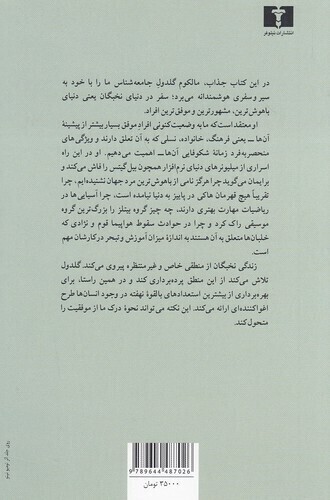 انتشارات نیلوفر
در این کتاب جذاب، مالکوم گلدول جامعه‌شناس ما را با خود به
سیر و سفری هوشمندانه می‌برد؛ سفر در دنیای نخبگان یعنی دنیای
باهوش‌ترین، مشهورترین و موفق‌ترین افراد.
او معتقد است که ما به وضعیت کنونی افراد موفق بسیار بیشتر از پیشینهٔ
آن‌ها ـ یعنی فرهنگ، خانواده، نسلی که به آن تعلق دارند و ویژگی‌های
منحصربه‌فرد زمانهٔ شکوفایی آن‌ها ـ اهمیت می‌دهیم. او در این راه
اسراری از میلیونرهای دنیای نرم‌افزار همچون بیل‌گیتس را فاش می‌کند و
برایمان می‌گوید چرا هرگز نامی از باهوش‌ترین مرد جهان نشنیده‌ایم، چرا
تقریباً هیچ قهرمان هاکی در پاییز به دنیا نیامده است، چرا آسیایی‌ها در
ریاضیات مهارت بهتری دارند، چه چیز گروه بیتلز را بزرگ‌ترین گروه
موسیقی راک کرد و چرا در حوادث سقوط هواپیما قوم و نژادی که
خلبان‌ها متعلق به آن هستند به اندازهٔ میزان آموزش و تبحر در کارشان مهم
است.
زندگی نخبگان از منطقی خاص و غیرمنتظره پیروی می‌کند. گلدول
تلاش می‌کند از این منطق پرده‌برداری کند و در همین راستا، برای
بهره‌برداری از بیشترین استعدادهای بالقوهٔ نهفته در وجود انسان‌ها طرح
اغواکننده‌ای ارائه می‌کند. این نکته می‌تواند نحوهٔ درک ما از موفقیت را
متحول کند.
9 789644 487026
۳۵۰۰۰ تومان